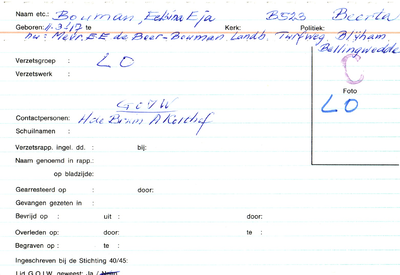 Naam etc.: Bouman, Eelina Eja B523 Beerta
Geboren: 11-3-'17 te Kerk: Politiek:
nu: Mevr. E.E de Boer-Bouman Landb. Turfweg, Blijham,
Bellingwedde
Verzetsgroep : LO
C
Verzetswerk :
Foto
LO
GOIW
Contactpersonen: H. de Bruin A Kerchof
Schuilnaam :
Verzetsrapp. ingel. dd. : bij:
Naam genoemd in rapp.:
op bladzijde:
Gearresteerd op : door:
Gevangen gezeten in :
Bevrijd op : uit : door:
Overleden op : door: te :
Begraven op : te :
Ingeschreven bij de Stichting 40/45:
Lid G.O.I.W. geweest: Ja / Neen